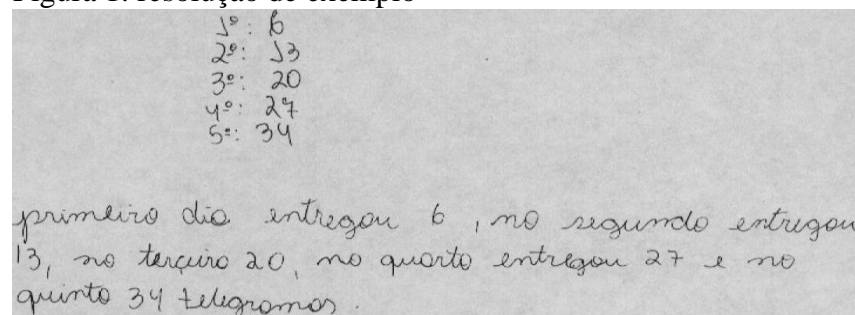 Figura 1: resolução do exemplo
1º: 6
2º: 13
3º: 20
4º: 27
5º: 34
primeiro dia entregou 6, no segundo entregou
13, no terceiro 20, no quarto entregou 27 e no
quinto 34 telegramas.